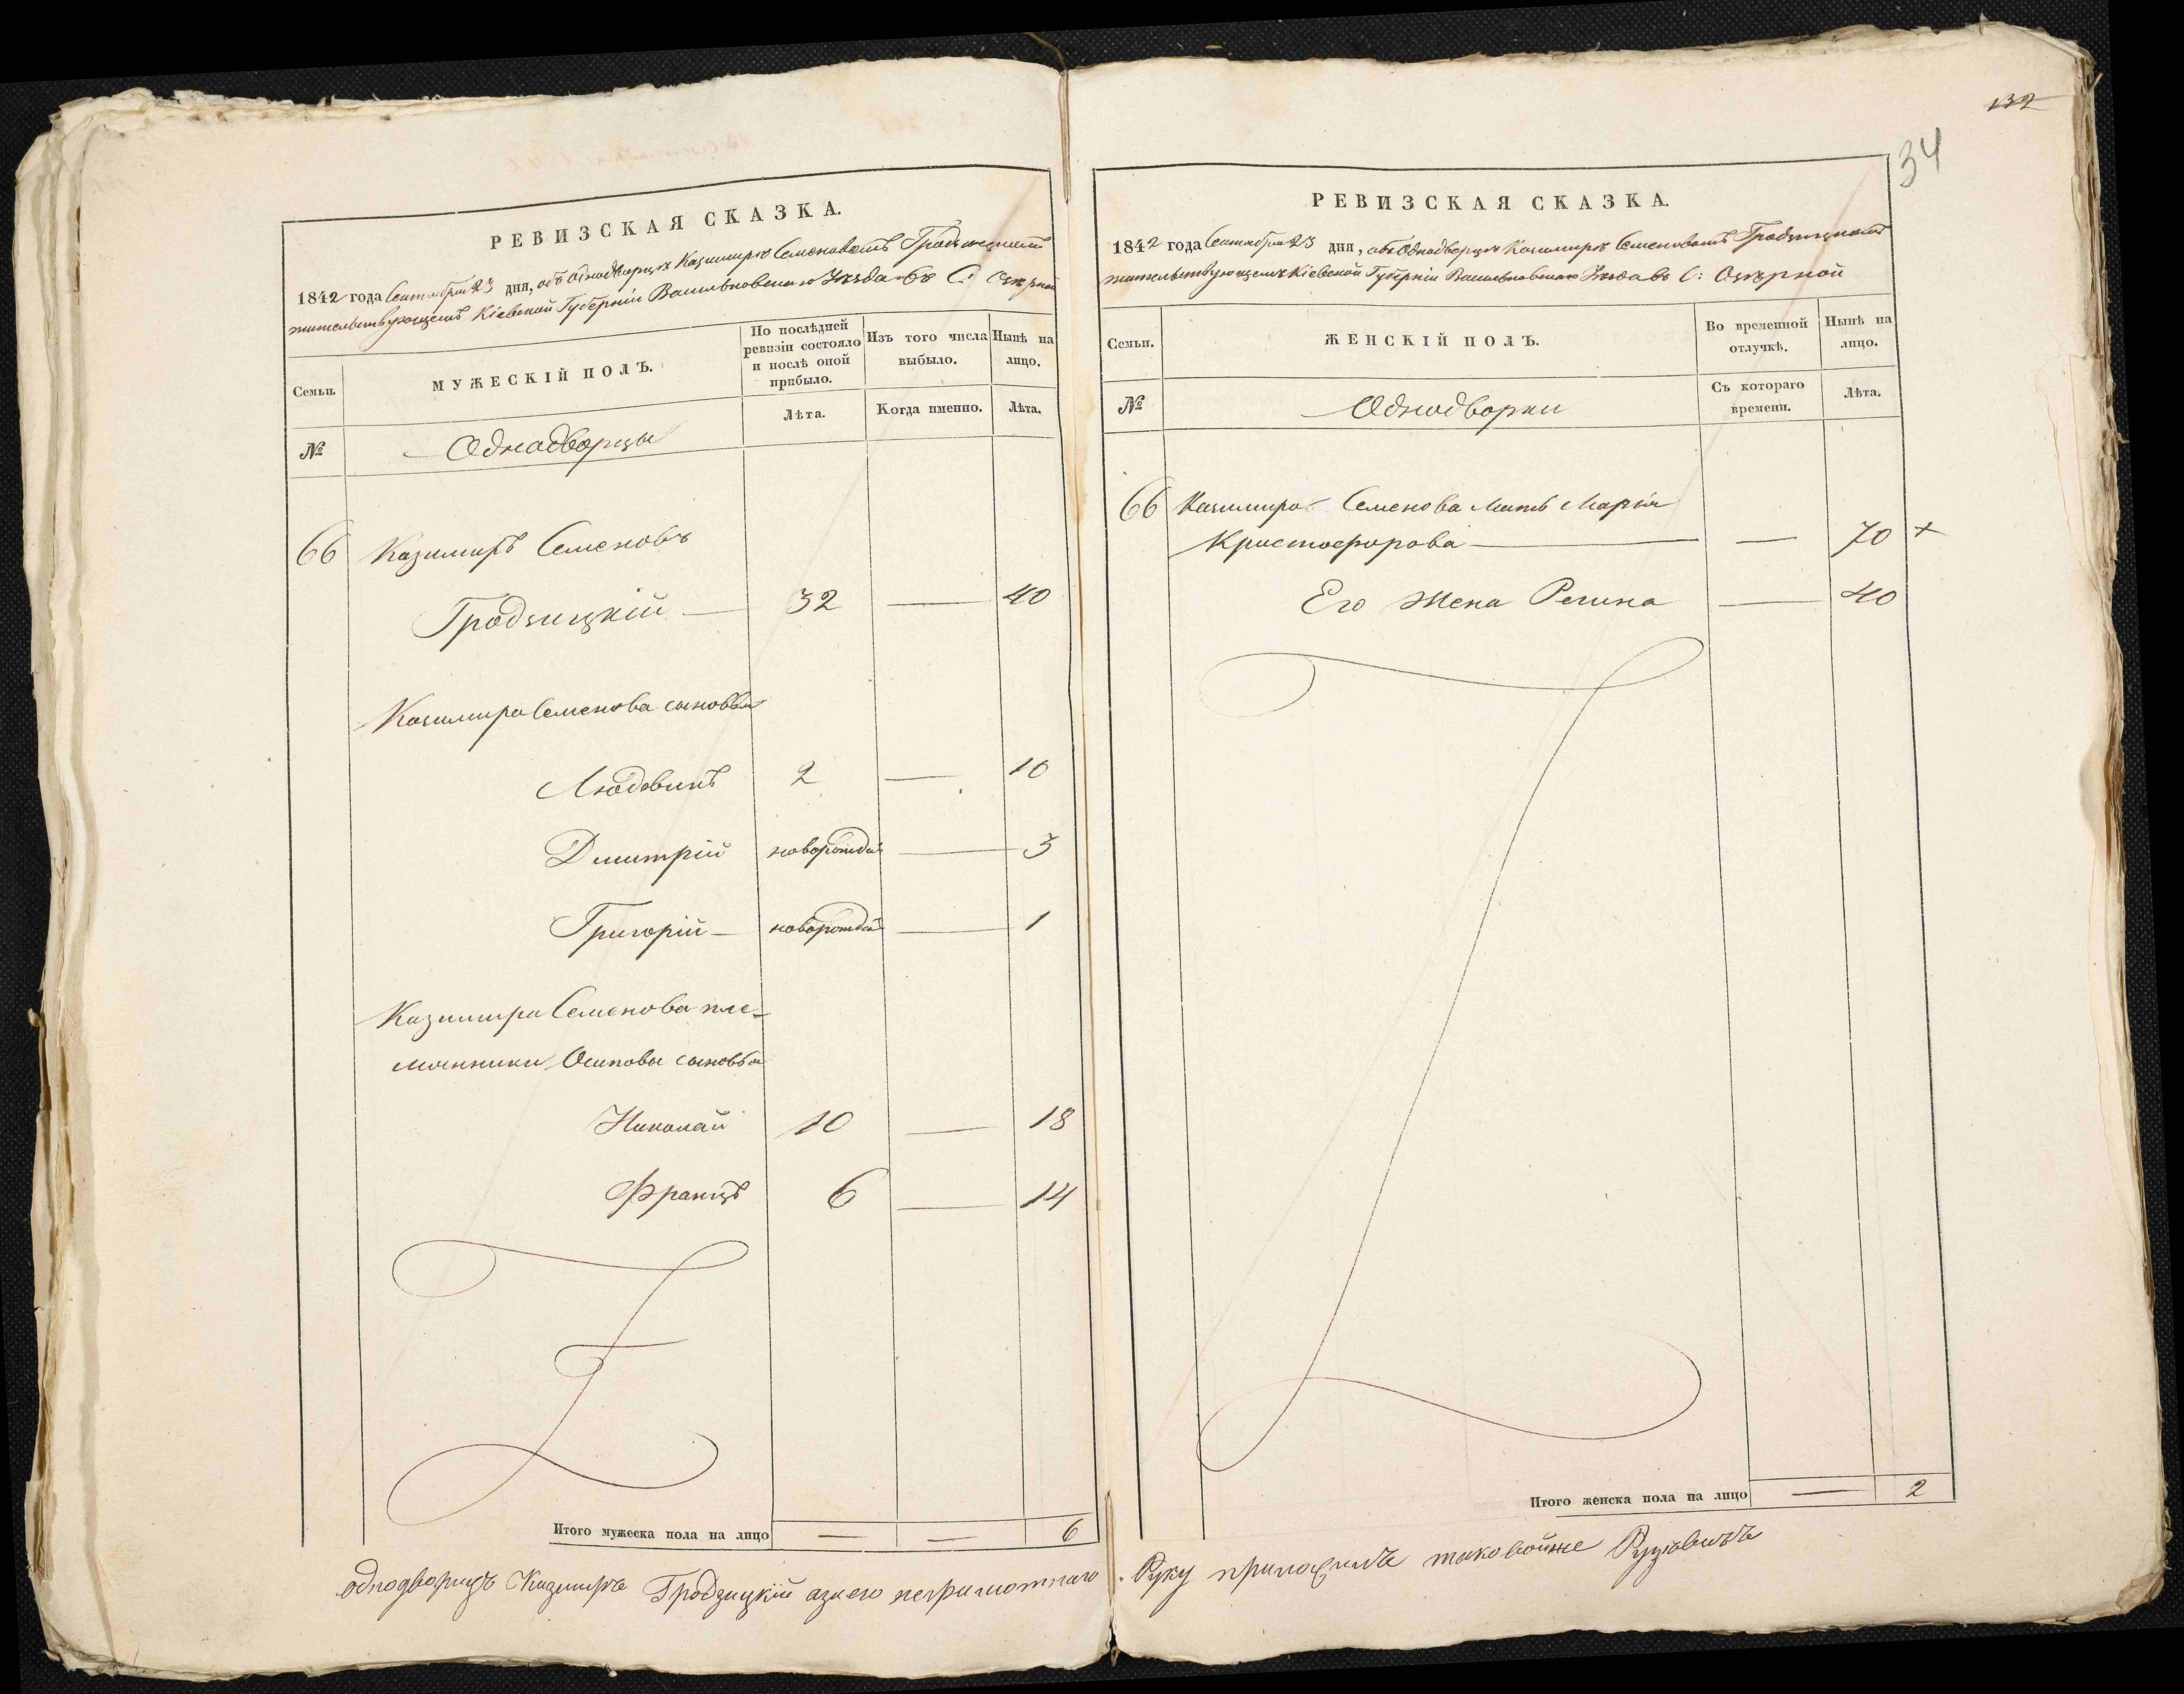 132
34
РЕВИЗСКАЯ СКАЗКА.
1842 года Сентября 23 дня, объ Однодворцѣ Казимирѣ Семеновомъ Гродзицкомъ
жительствующемъ Кіевской Губерніи Васильковскаго Уѣзда въ С: Озѣрной
Семьи.
МУЖЕСКІЙ ПОЛЪ.
По послѣдней
ревизіи состояло
и послѣ оной
прибыло.
Изъ того числа
выбыло.
Нынѣ на
лицо.
№
Однодворцы
Лѣта.
Когда именно.
Лѣта.
66 Казимиръ Семеновъ
Гродзицкій — 32 — 40
Казимира Семенова сыновья
Людовикъ 2 — 10
Дмитрій новорожден — 3
Григорій — новорожден — 1
Казимира Семенова пле-
мянники Осиповы сыновья
Николай 10 — 18
Францъ 6 — 14
Итого мужеска пола на лицо — — 6
однодворецъ Казимиръ Гродзицкій а за его неграмотнаго
РЕВИЗСКАЯ СКАЗКА.
1842 года Сентября 23 дня, объ Однодворцѣ Казимирѣ Семеновомъ Гродзицкомъ
жительствующемъ Кіевской Губерніи Васильковскаго Уѣзда въ С: Озѣрной
Семьи.
ЖЕНСКІЙ ПОЛЪ.
Во временной
отлучкѣ.
Нынѣ на
лицо.
№
Однодворки
Съ котораго
времени.
Лѣта.
66 Казимира Семенова Мать Марія
Кристофорова — — 70 +
Его Жена Регина — 40
Итого женска пола на лицо — 2
Руку приложилъ таковойже